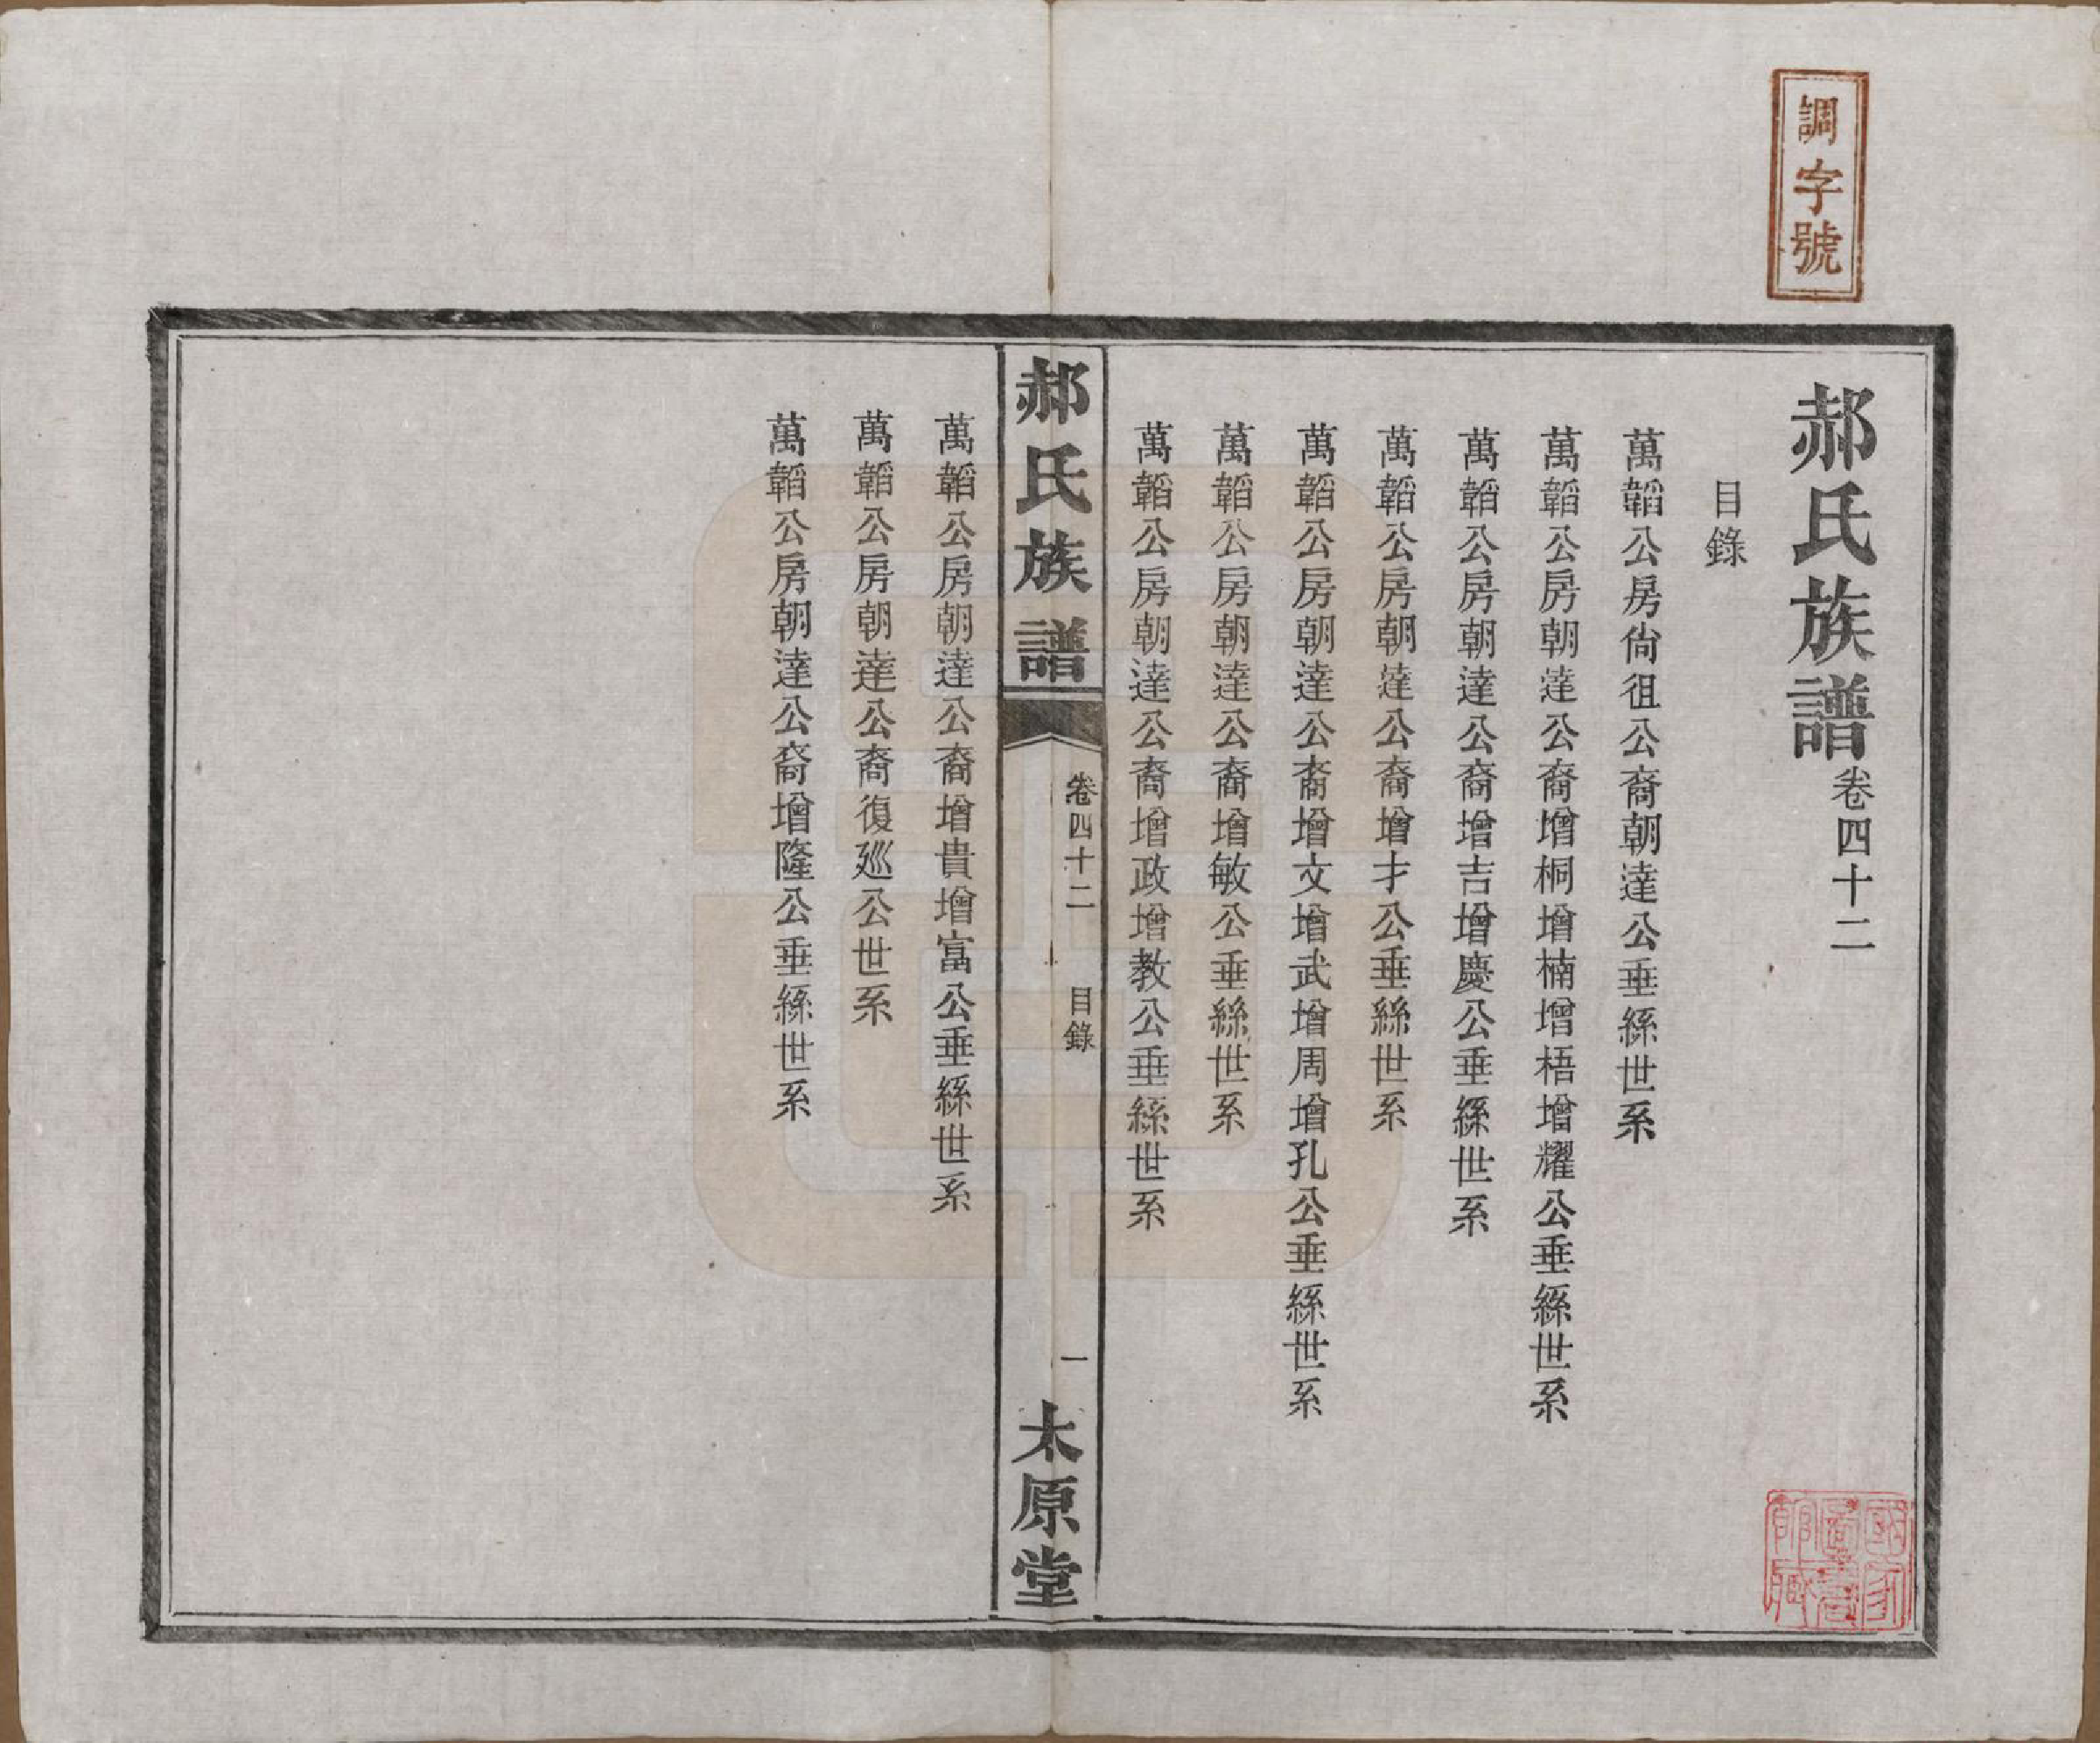 調字號
郝氏族譜卷四十二
目錄
萬韜公房尙徂公裔朝達公垂絲世系
萬韜公房朝達公裔增桐增楠增梧增耀公垂絲世系
萬韜公房朝達公裔增吉增慶公垂絲世系
萬韜公房朝達公裔增才公垂絲世系
萬韜公房朝達公裔增文增武增周增孔公垂絲世系
萬韜公房朝達公裔增敏公垂絲世系
萬韜公房朝達公裔增政增教公垂絲世系
郝氏族譜
卷四十二 目錄
一
太原堂
萬韜公房朝達公裔增貴增富公垂絲世系
萬韜公房朝達公裔復廵公世系
萬韜公房朝達公裔增隆公垂絲世系
國家圖書館藏